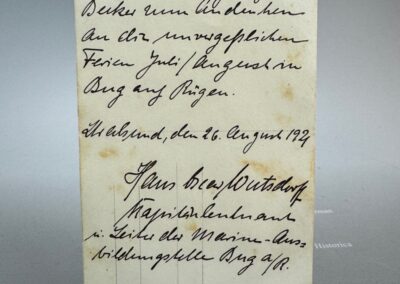 Becker zum Andenken
an die unvergeßlichen
Ferien Juli/August in
Bug auf Rügen.
Stralsund, den 26. August 192
Hans
Kapitänleutnant
u. Leiter der Marine-Aus=
bildungstelle Bug a/R.
Historica